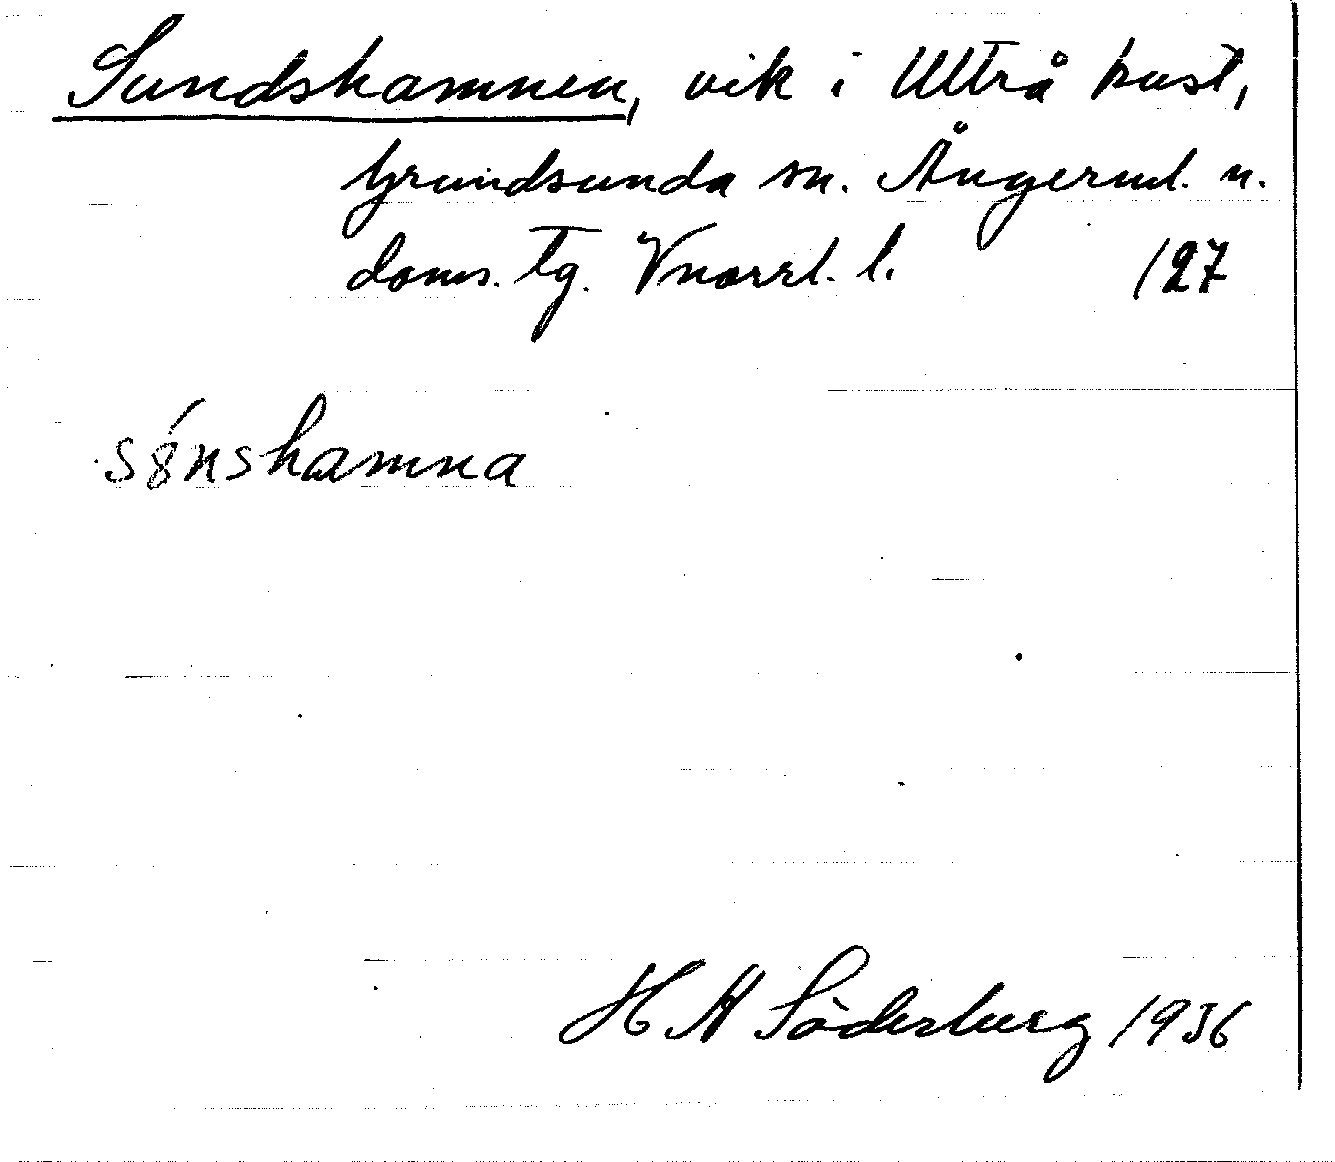 Sundshamnen, vik i Ulltrå kust,
Grundsunda sn. Ångerml. n.
doms. Tg. Vnorrl. l. /27
sȣ́nshamna
H A Söderberg 1936